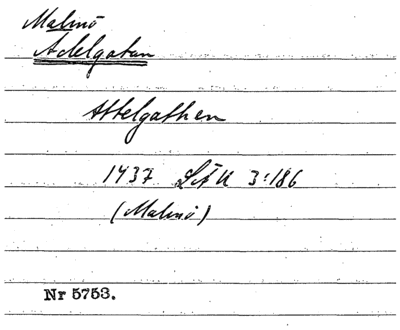 Malmö
Adelgatan
Attelgathen
1437 LÄU 3:186
(Malmö)
Nr 5753.